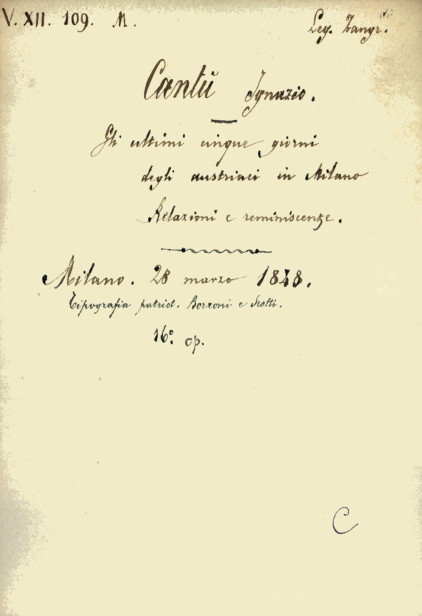 V. XII. 109. M.
Leg. Zangr.
Cantù Ignazio.
Gli ultimi cinque giorni
degli austriaci in Milano
Relazioni e reminiscenze.
Milano. 28 marzo 1848.
Tipografia patriot. Borroni e Scotti.
16.° op.
C